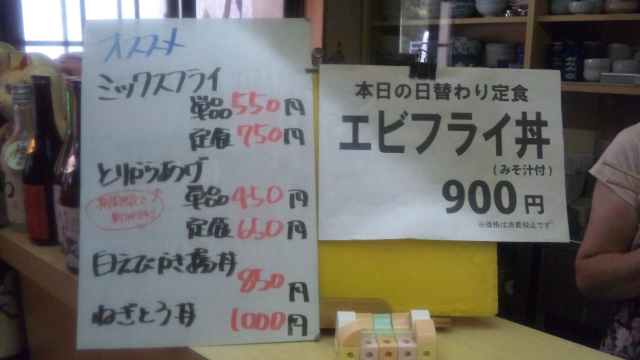 オススメ
ミックスフライ
単品550円
定食750円
とりからあげ
単品450円
定食650円
白えびかき揚丼
850円
ねぎとろ丼 1000円
本日の日替わり定食
エビフライ丼
(みそ汁付)
900円
※価格は消費税込です